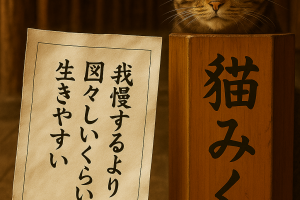 我慢するより
図々しいくらい
生きやすい
猫みく